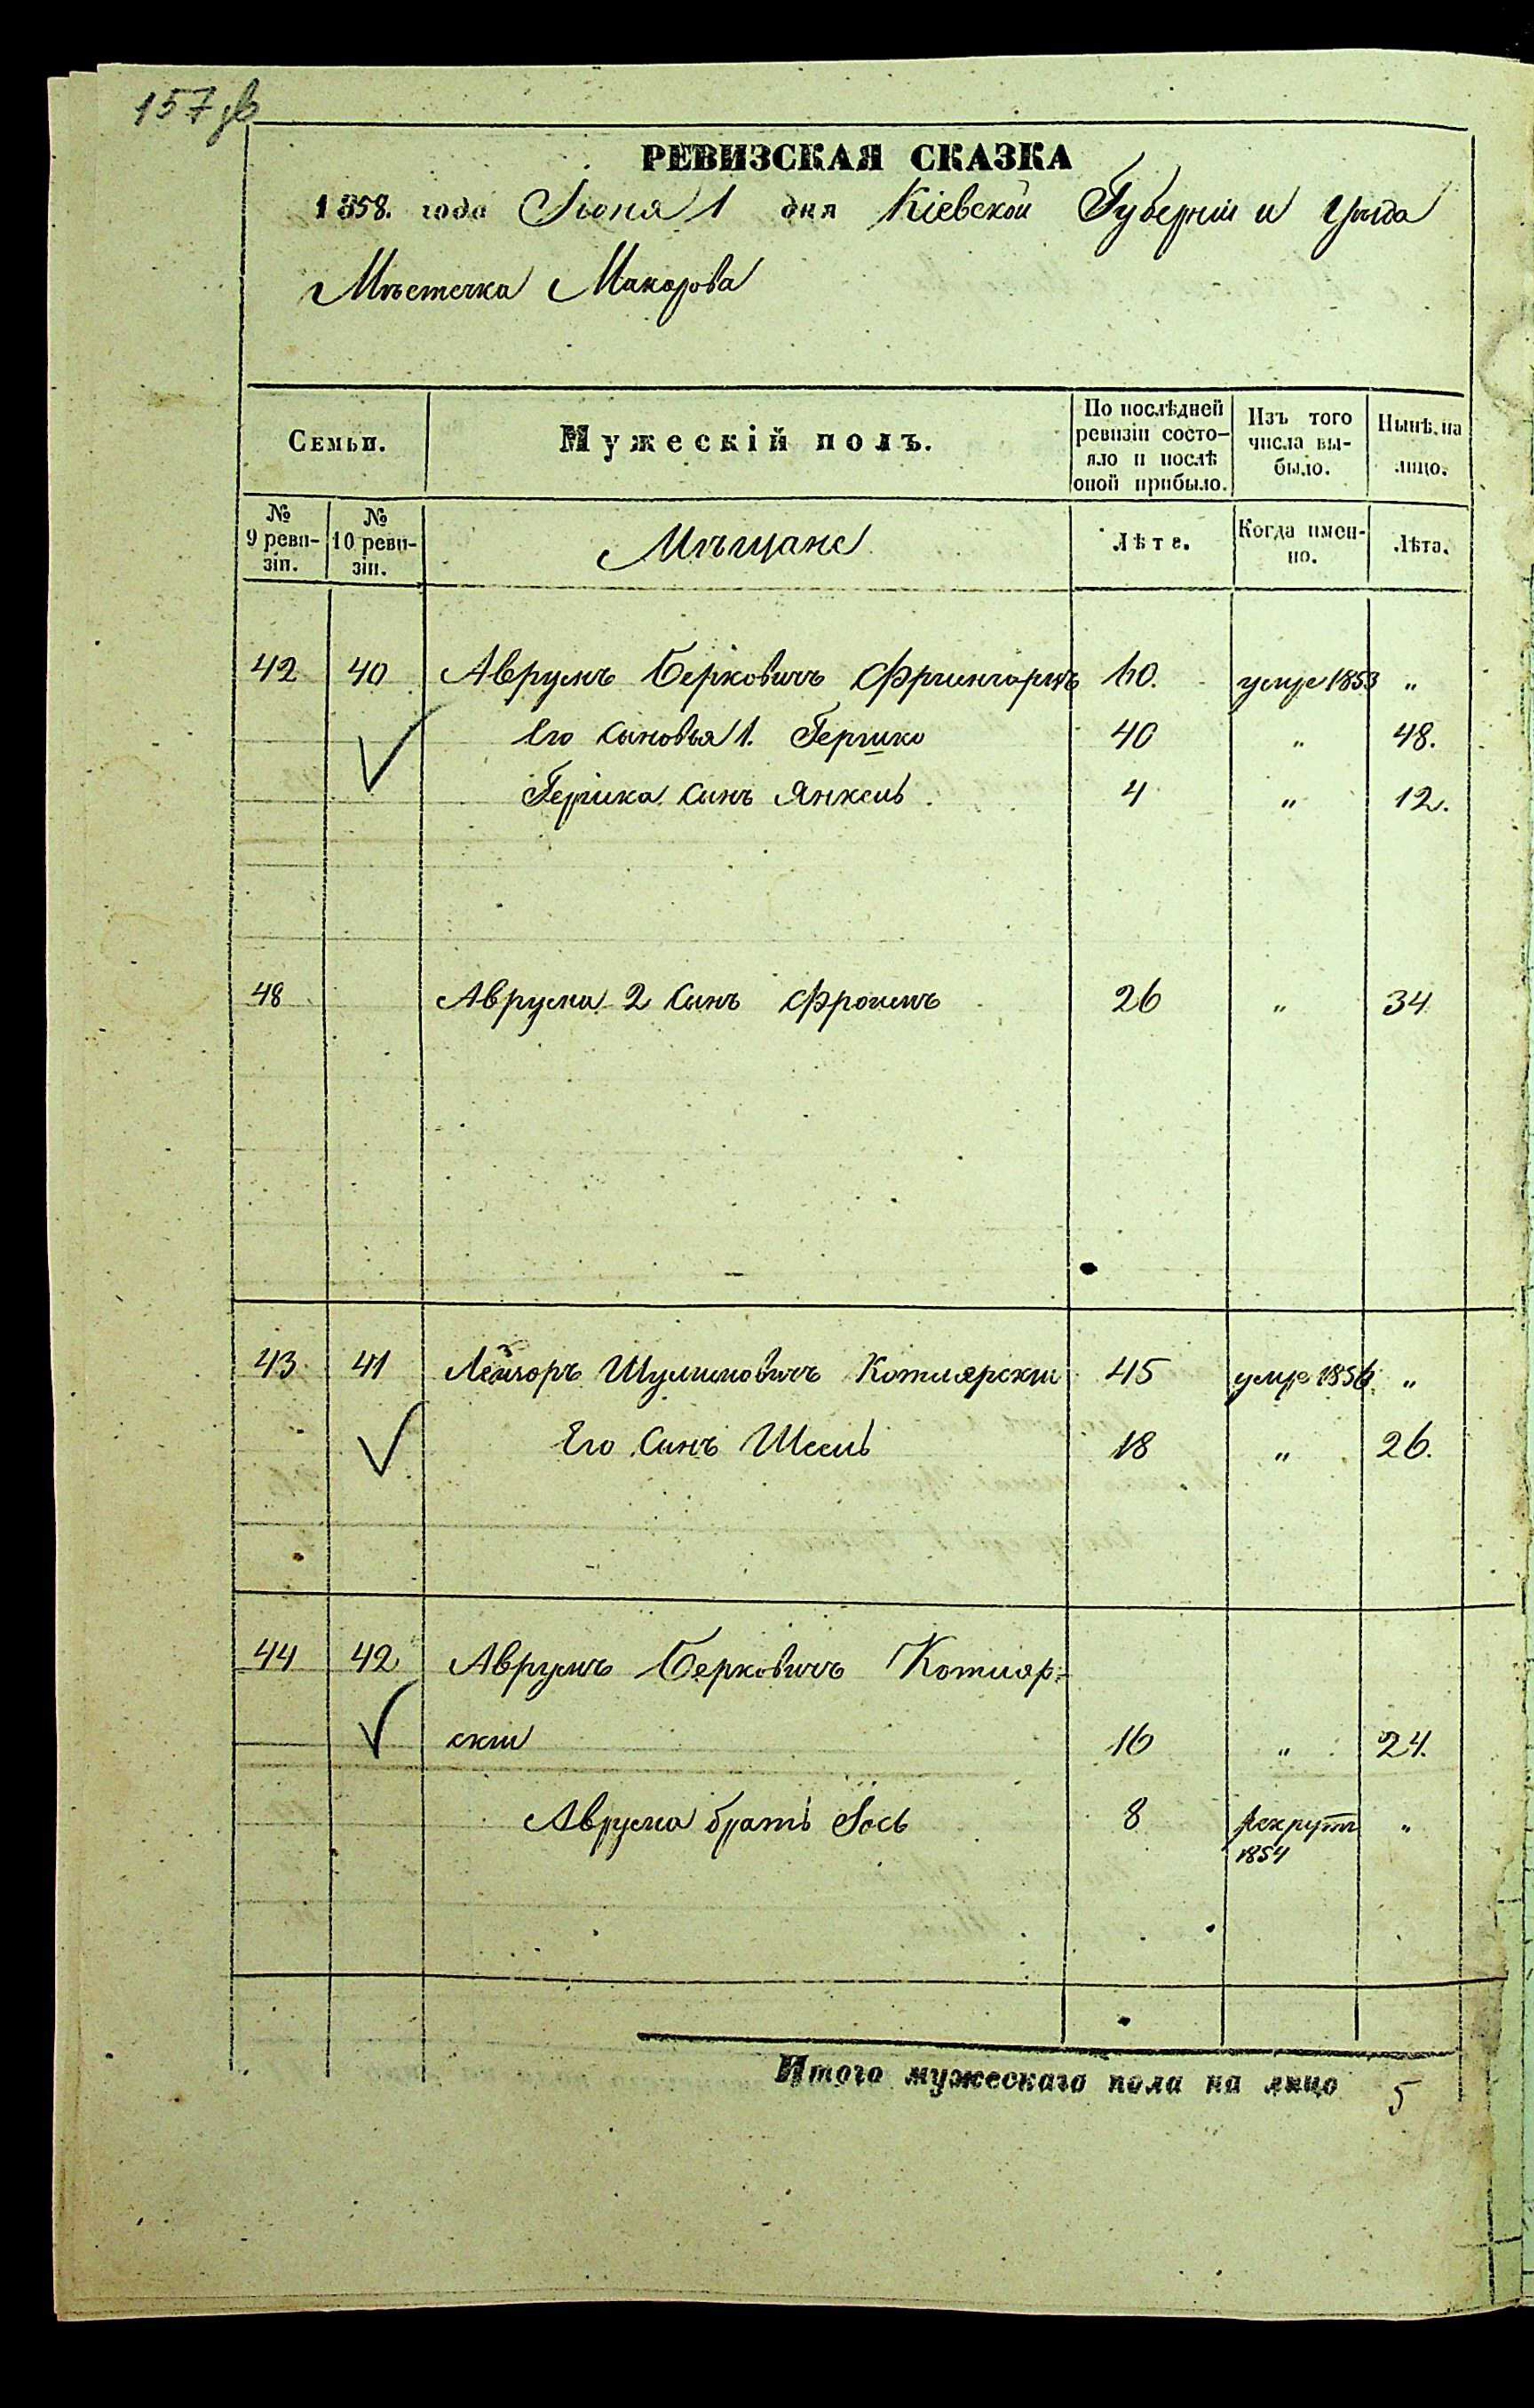 157 об
РЕВИЗСКАЯ СКАЗКА
1858. года Июня 1 дня Кіевской Губерніи и Уѣзда
Мѣстечка Макарова
Семьи.
Мужескій полъ.
По послѣдней ревизіи состо-
яло и послѣ оной прибыло.
Изъ того числа вы-
было.
Нынѣ на лицо.
№ 9 реви-
зіи.
№ 10 реви-
зіи.
Мѣщане
Лѣта.
Когда имен-
но.
Лѣта.
42 40 Аврумъ Берковичъ 60. умре 1853 "
Его сыновья 1. Гершко 40 " 48.
Гершка сынъ Янкель 4 " 12.
48 Аврума 2 сынъ Фроимъ 26 " 34
43 41 Лейзоръ Шулимовичъ Котлярскій 45 умре 1856 "
Его Сынъ 18 " 26.
44 42 Аврумъ Берковичъ Котляр-
скій 16 " 24.
Аврума братъ Іось 8 рекрутъ "
1854
Итого мужескаго пола на лицо 5